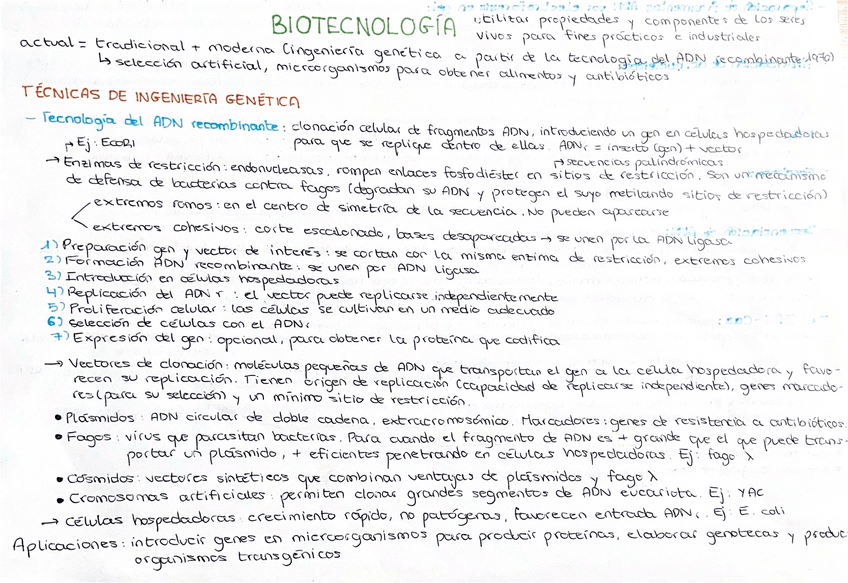 BIOTECNOLOGÍA utilizar propiedades y componentes de los seres
vivos para fines prácticos e industriales
actual = tradicional + moderna (ingeniería genética a partir de la tecnología del ADN recombinante 1970)
↳ selección artificial, microorganismos para obtener alimentos y antibióticos
TÉCNICAS DE INGENIERÍA GENÉTICA
- Tecnología del ADN recombinante: clonación celular de fragmentos ADN, introduciendo un gen en células hospedadoras
para que se replique dentro de ellas. ADNr = inserto (gen) + vector
Ej: EcoRI
secuencias palindrómicas
→ Enzimas de restricción: endonucleasas, rompen enlaces fosfodiéster en sitios de restricción. Son un mecanismo
de defensa de bacterias contra fagos (degradan su ADN y protegen el suyo metilando sitios de restricción)
extremos romos: en el centro de simetría de la secuencia. No pueden aparearse
extremos cohesivos: corte escalonado, bases desapareadas → se unen por la ADN ligasa
1) Preparación gen y vector de interés: se cortan con la misma enzima de restricción, extremos cohesivos
2) Formación ADN recombinante: se unen por ADN ligasa
3) Introducción en células hospedadoras
4) Replicación del ADN r: el vector puede replicarse independientemente
5) Proliferación celular: las células se cultivan en un medio adecuado
6) Selección de células con el ADNr
7) Expresión del gen: opcional, para obtener la proteína que codifica
→ Vectores de clonación: moléculas pequeñas de ADN que transportan el gen a la célula hospedadora y favo-
recen su replicación. Tienen origen de replicación (capacidad de replicarse independiente), genes marcado-
res (para su selección) y un mínimo sitio de restricción.
• Plásmidos: ADN circular de doble cadena, extracromosómico. Marcadores: genes de resistencia a antibióticos.
• Fagos: virus que parasitan bacterias. Para cuando el fragmento de ADN es + grande que el que puede trans-
portar un plásmido, + eficientes penetrando en células hospedadoras. Ej: fago λ
• Cósmidos: vectores sintéticos que combinan ventajas de plásmidos y fago λ
• Cromosomas artificiales: permiten clonar grandes segmentos de ADN eucariota. Ej: YAC
→ Células hospedadoras: crecimiento rápido, no patógenas, favorecen entrada ADNr. Ej: E. coli
Aplicaciones: introducir genes en microorganismos para producir proteínas, elaborar genotecas y produc
organismos transgénicos